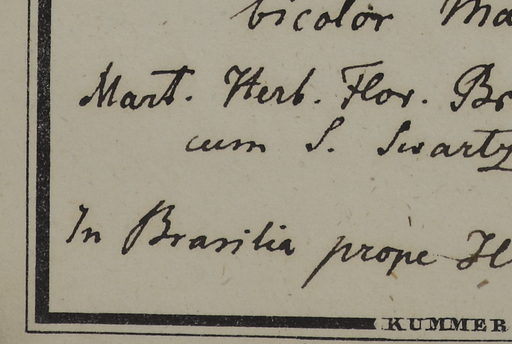 bicolor Ma
Mart. Herb. Flor. Br
cum S. Swartz
In Brasilia prope H
KUMMER